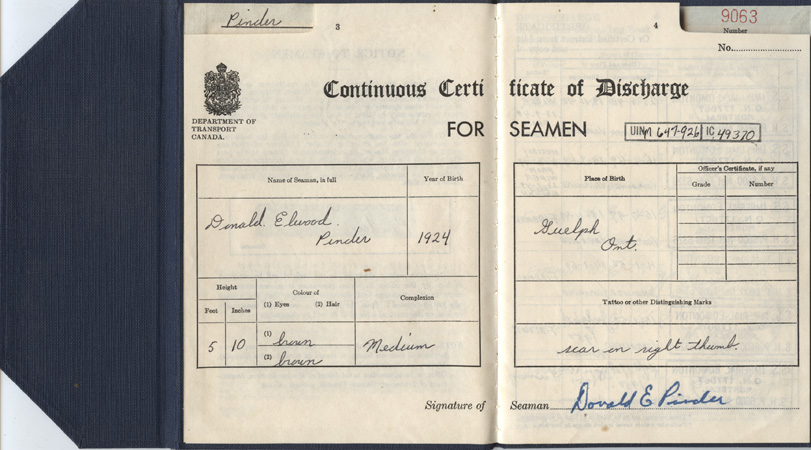 Pinder
3
4
9063
Number
No.
Continuous Certificate of Discharge
FOR SEAMEN
DEPARTMENT OF
TRANSPORT
CANADA.
UINM 647-926 IC 49370
Name of Seaman, in full
Year of Birth
Donald Elwood
Pinder
1924
Height
Colour of
Complexion
Feet
Inches
(1) Eyes
(2) Hair
5
10
(1) brown
(2) brown
Medium
Place of Birth
Officer's Certificate, if any
Grade
Number
Guelph
Ont.
Tattoo or other Distinguishing Marks
scar on right thumb.
Signature of Seaman Donald E Pinder